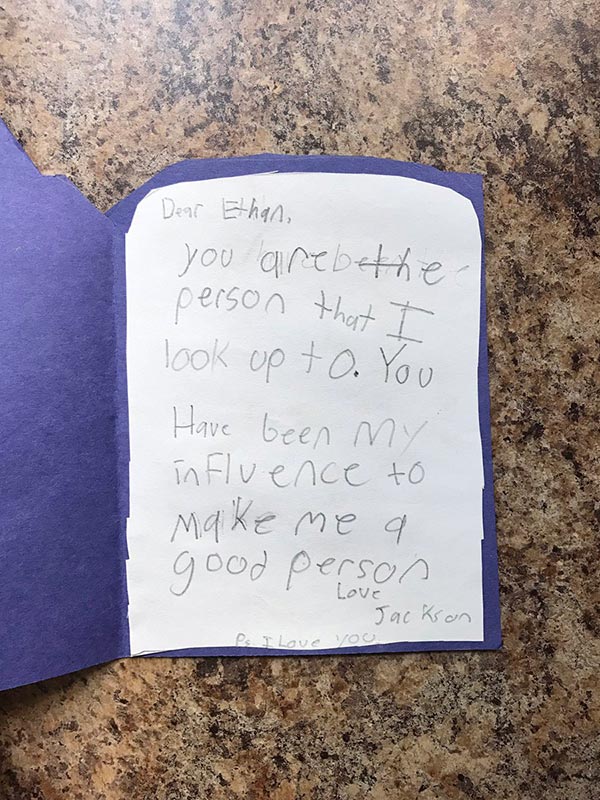 Dear Ethan,
you are the
person that I
look up to. You
Have been My
influence to
Make me a
good person
Love
Jackson
Ps. I Love You.